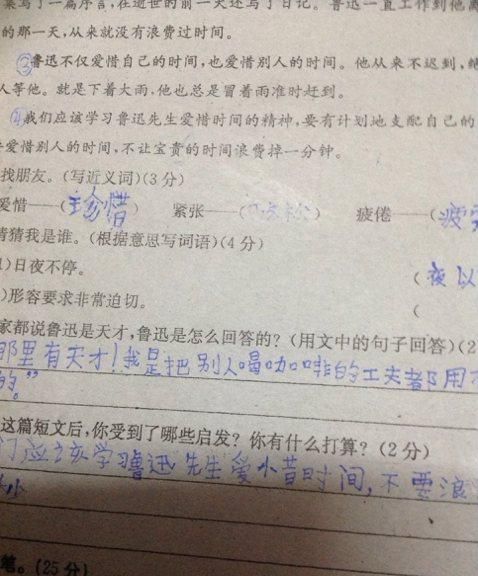 集写了一篇序言,在逝世的前一天还写了日记。鲁迅一直工作到他离
的那一天,从来就没有浪费过时间。
③鲁迅不仅爱惜自己的时间,也爱惜别人的时间。他从来不迟到,绝
人等他。就是下着大雨,他也总是冒着雨准时赶到。
④我们应该学习鲁迅先生爱惜时间的精神,要有计划地支配自己的
爱惜别人的时间,不让宝贵的时间浪费掉一分钟。
找朋友。(写近义词)(3分)
爱惜——(珍惜) 紧张——( ) 疲倦——(疲
猜猜我是谁。(根据意思写词语)(4分)
1)日夜不停。 (夜以
)形容要求非常迫切。 (
家都说鲁迅是天才,鲁迅是怎么回答的?(用文中的句子回答)(2
那里有天才!我是把别人喝咖啡的工夫都用
的。”
这篇短文后,你受到了哪些启发?你有什么打算?(2分)
们应该学习鲁迅先生爱惜时间,不要浪
笔。(25分)